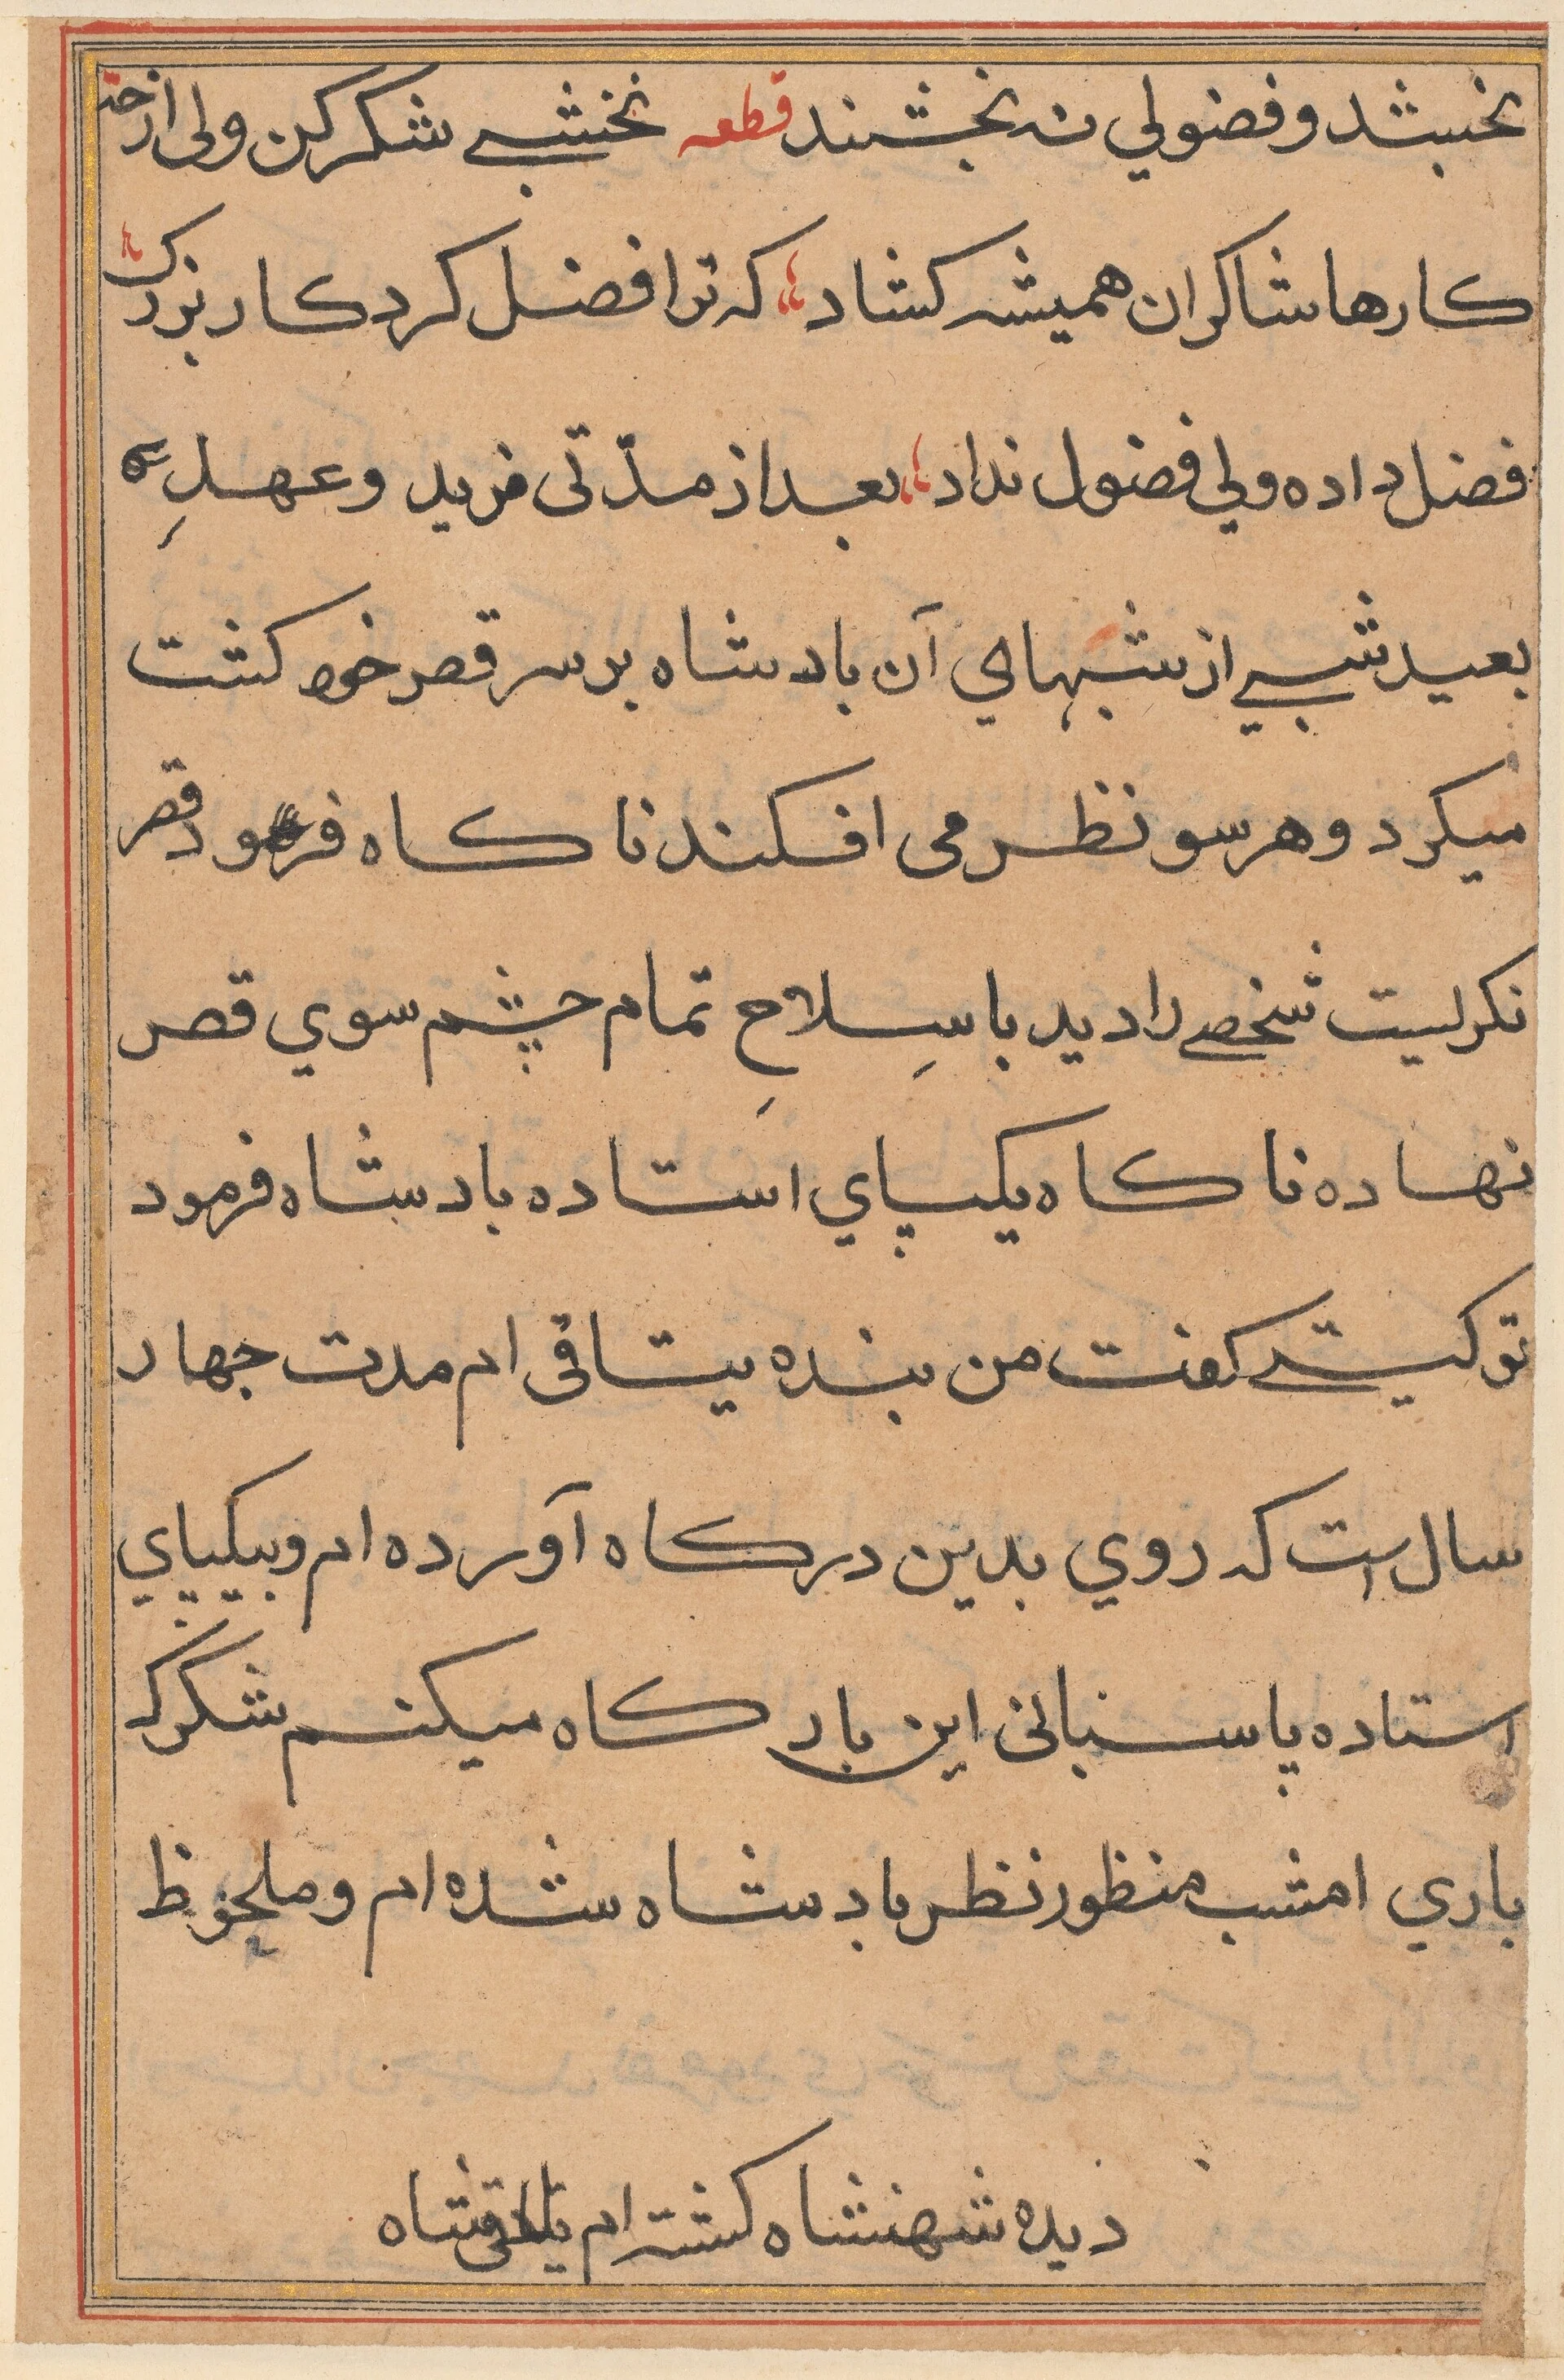 نخبشد و فضولي نه نخشند قطعه نخشبے شكر كن ولى از حق
كارها شاكران هميشه كشاد كه ترا فضل كرد كار بزرك
فضل داده ولي فضول نداد بعد از مدّتى مزيد و عهدِ
بعيد شبے از شبهاي آن بادشاه بر سر قصر خود كشت
ميكرد و هر سو نظر مى افكند ناكاه فرمود قصر
نكريست شخصے را ديد با سِلاحِ تمام چشم سوي قصر
نهاده ناكاه يكپاي استاده بادشاه فرمود
تو كيستے كفت من بنده يتاقى ام مدت چهار
سال است كه روي بدين دركاه آورده ام و بيكپاي
استاده پاسبانى اين باركاه ميكنم شكر كه
باري امشب منظور نظر بادشاه شده ام و ملحوظ
ديده شهنشاه كشته ام شاه